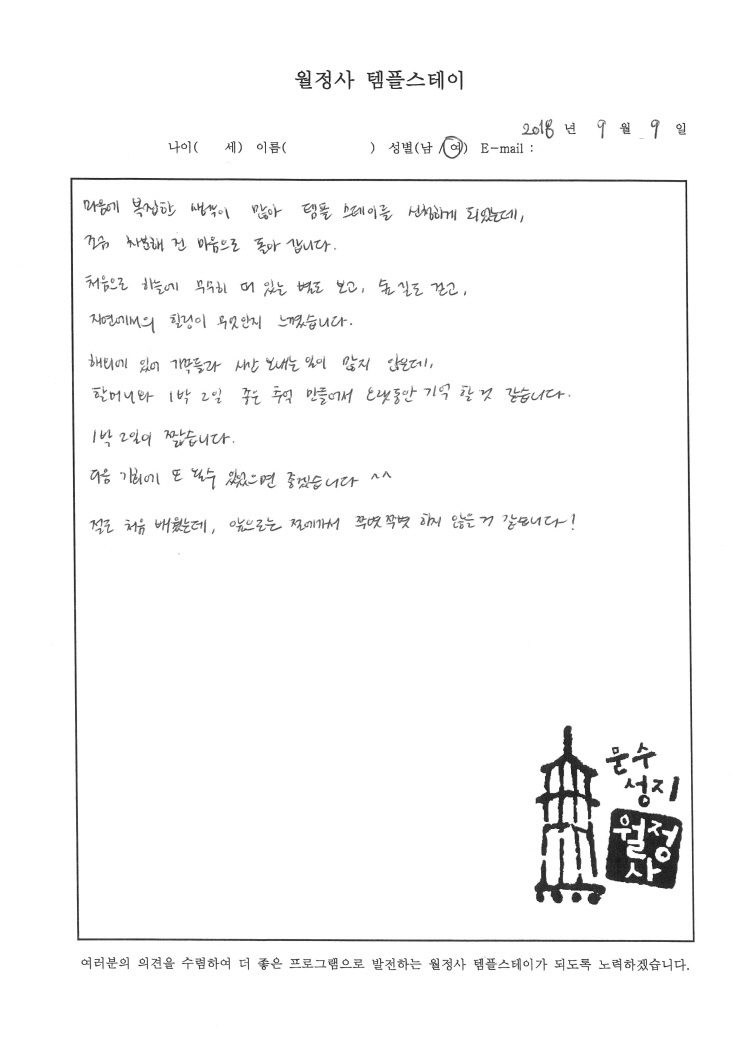 월정사 템플스테이
2018 년 9 월 9 일
나이( 세) 이름( ) 성별(남 /여) E-mail :
마음에 복잡한 생각이 많아 템플 스테이를 신청하게 되었는데,
조금 차분해 진 마음으로 돌아 갑니다.
처음으로 하늘에 무수히 떠 있는 별도 보고, 숲 길도 걷고,
자연에서의 힐링이 무엇인지 느꼈습니다.
해외에 있어 가족들과 시간 보내는 일이 많지 않은데,
할머니와 1박 2일 좋은 추억 만들어서 오랫동안 기억 할 것 같습니다.
1박 2일이 짧습니다.
다음 기회에 또 올수 있었으면 좋겠습니다 ^^
절도 처음 배웠는데, 앞으로는 절에가서 쭈뼛쭈뼛 하지 않을 거 같습니다!
문수
성지
월정
사
여러분의 의견을 수렴하여 더 좋은 프로그램으로 발전하는 월정사 템플스테이가 되도록 노력하겠습니다.